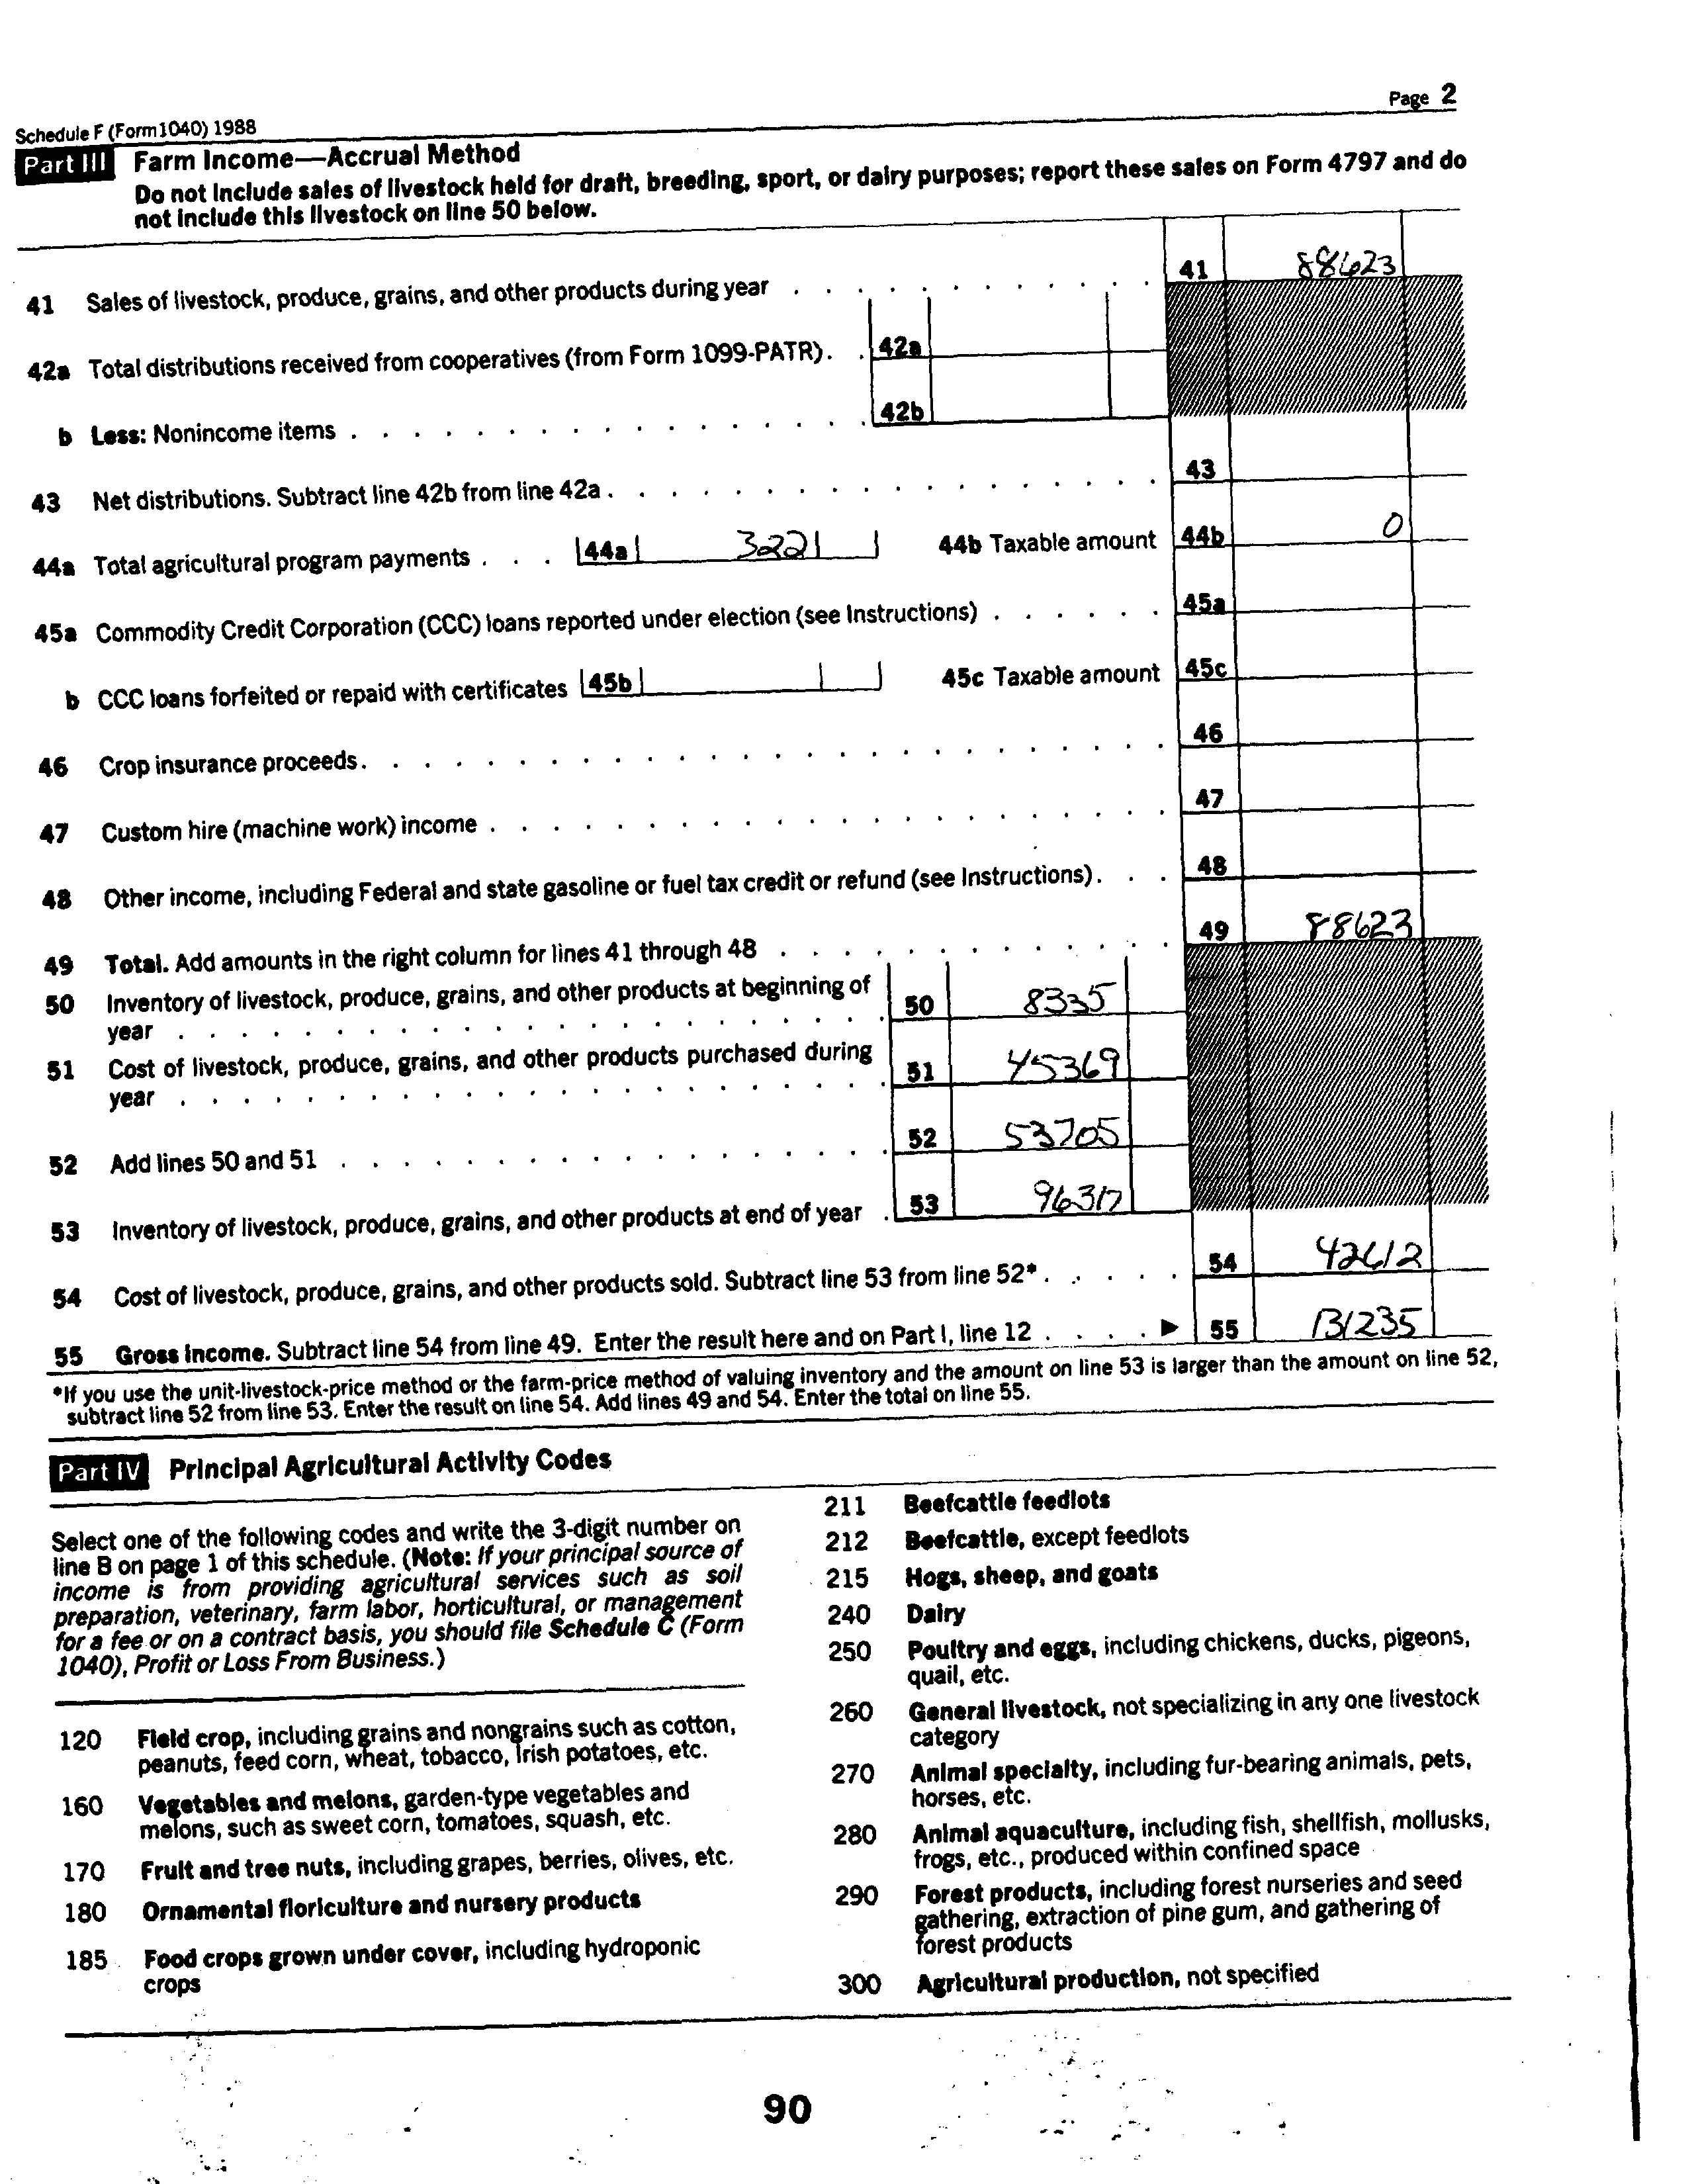 Schedule F (Form 1040) 1988
Page 2
Part III Farm Income—Accrual Method
Do not include sales of livestock held for draft, breeding, sport, or dairy purposes; report these sales on Form 4797 and do
not include this livestock on line 50 below.
41 Sales of livestock, produce, grains, and other products during year . . . . . . . . . . . . 41 88623
42a Total distributions received from cooperatives (from Form 1099-PATR). . 42a
b Less: Nonincome items . . . . . . . . . . . . . . . . . 42b
43 Net distributions. Subtract line 42b from line 42a . . . . . . . . . . . . . . . . . . 43
44a Total agricultural program payments . . . 44a 3221 44b Taxable amount 44b 0
45a Commodity Credit Corporation (CCC) loans reported under election (see Instructions) . . . . . . 45a
b CCC loans forfeited or repaid with certificates 45b 45c Taxable amount 45c
46 Crop insurance proceeds. . . . . . . . . . . . . . . . . . . . . . . . . . 46
47 Custom hire (machine work) income . . . . . . . . . . . . . . . . . . . . . . 47
48 Other income, including Federal and state gasoline or fuel tax credit or refund (see Instructions). . . 48
49 Total. Add amounts in the right column for lines 41 through 48 . . . . . . . . . . . . . 49 88623
50 Inventory of livestock, produce, grains, and other products at beginning of
year . . . . . . . . . . . . . . . . . . . . . . . 50 8335
51 Cost of livestock, produce, grains, and other products purchased during
year . . . . . . . . . . . . . . . . . . . . . . . 51 45369
52 Add lines 50 and 51 . . . . . . . . . . . . . . . . . . 52 53705
53 Inventory of livestock, produce, grains, and other products at end of year . 53 96317
54 Cost of livestock, produce, grains, and other products sold. Subtract line 53 from line 52* . . . . . 54 42612
55 Gross income. Subtract line 54 from line 49. Enter the result here and on Part I, line 12 . . . . ▶ 55 131235
*If you use the unit-livestock-price method or the farm-price method of valuing inventory and the amount on line 53 is larger than the amount on line 52,
subtract line 52 from line 53. Enter the result on line 54. Add lines 49 and 54. Enter the total on line 55.
Part IV Principal Agricultural Activity Codes
Select one of the following codes and write the 3-digit number on
line B on page 1 of this schedule. (Note: If your principal source of
income is from providing agricultural services such as soil
preparation, veterinary, farm labor, horticultural, or management
for a fee or on a contract basis, you should file Schedule C (Form
1040), Profit or Loss From Business.)
120 Field crop, including grains and nongrains such as cotton,
peanuts, feed corn, wheat, tobacco, Irish potatoes, etc.
160 Vegetables and melons, garden-type vegetables and
melons, such as sweet corn, tomatoes, squash, etc.
170 Fruit and tree nuts, including grapes, berries, olives, etc.
180 Ornamental floriculture and nursery products
185 Food crops grown under cover, including hydroponic
crops
211 Beefcattle feedlots
212 Beefcattle, except feedlots
215 Hogs, sheep, and goats
240 Dairy
250 Poultry and eggs, including chickens, ducks, pigeons,
quail, etc.
260 General livestock, not specializing in any one livestock
category
270 Animal specialty, including fur-bearing animals, pets,
horses, etc.
280 Animal aquaculture, including fish, shellfish, mollusks,
frogs, etc., produced within confined space
290 Forest products, including forest nurseries and seed
gathering, extraction of pine gum, and gathering of
forest products
300 Agricultural production, not specified
90